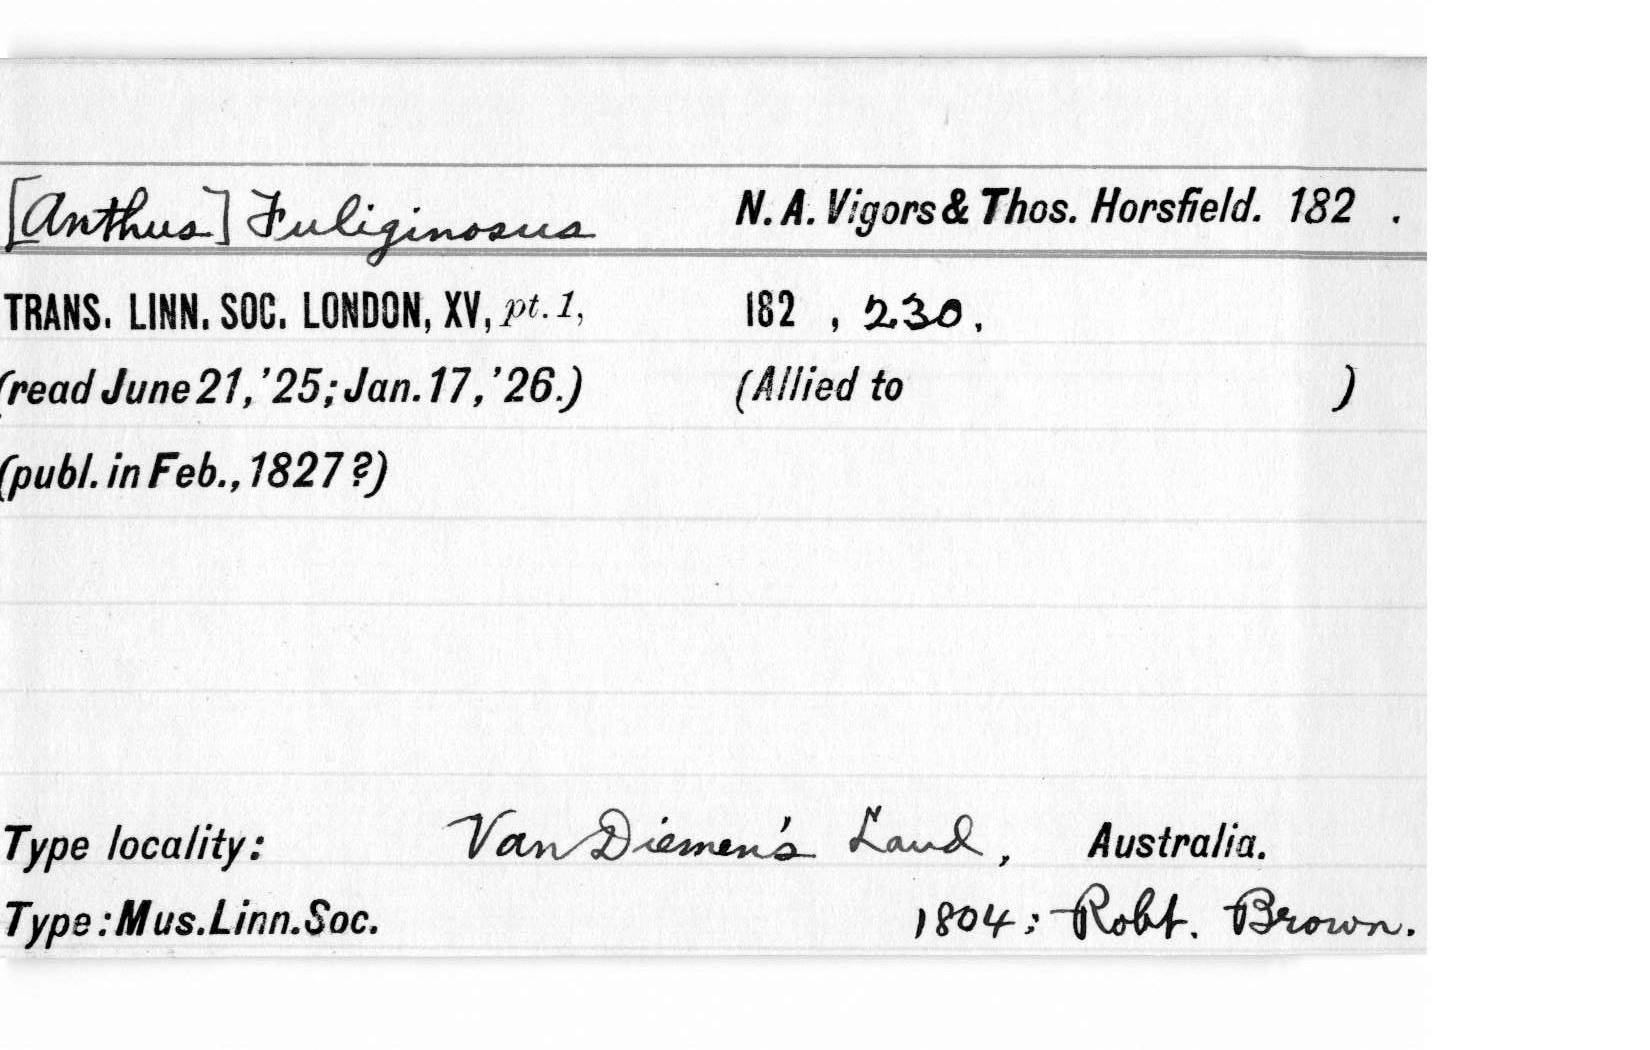 [Anthus] Fuliginosus N. A. Vigors & Thos. Horsfield. 182 .
TRANS. LINN. SOC. LONDON, XV, pt. 1, 182 , 230.
(read June 21, '25; Jan. 17, '26.) (Allied to )
(publ. in Feb., 1827 ?)
Type locality: Van Diemen's Land, Australia.
Type: Mus. Linn. Soc. 1804; Robt. Brown.